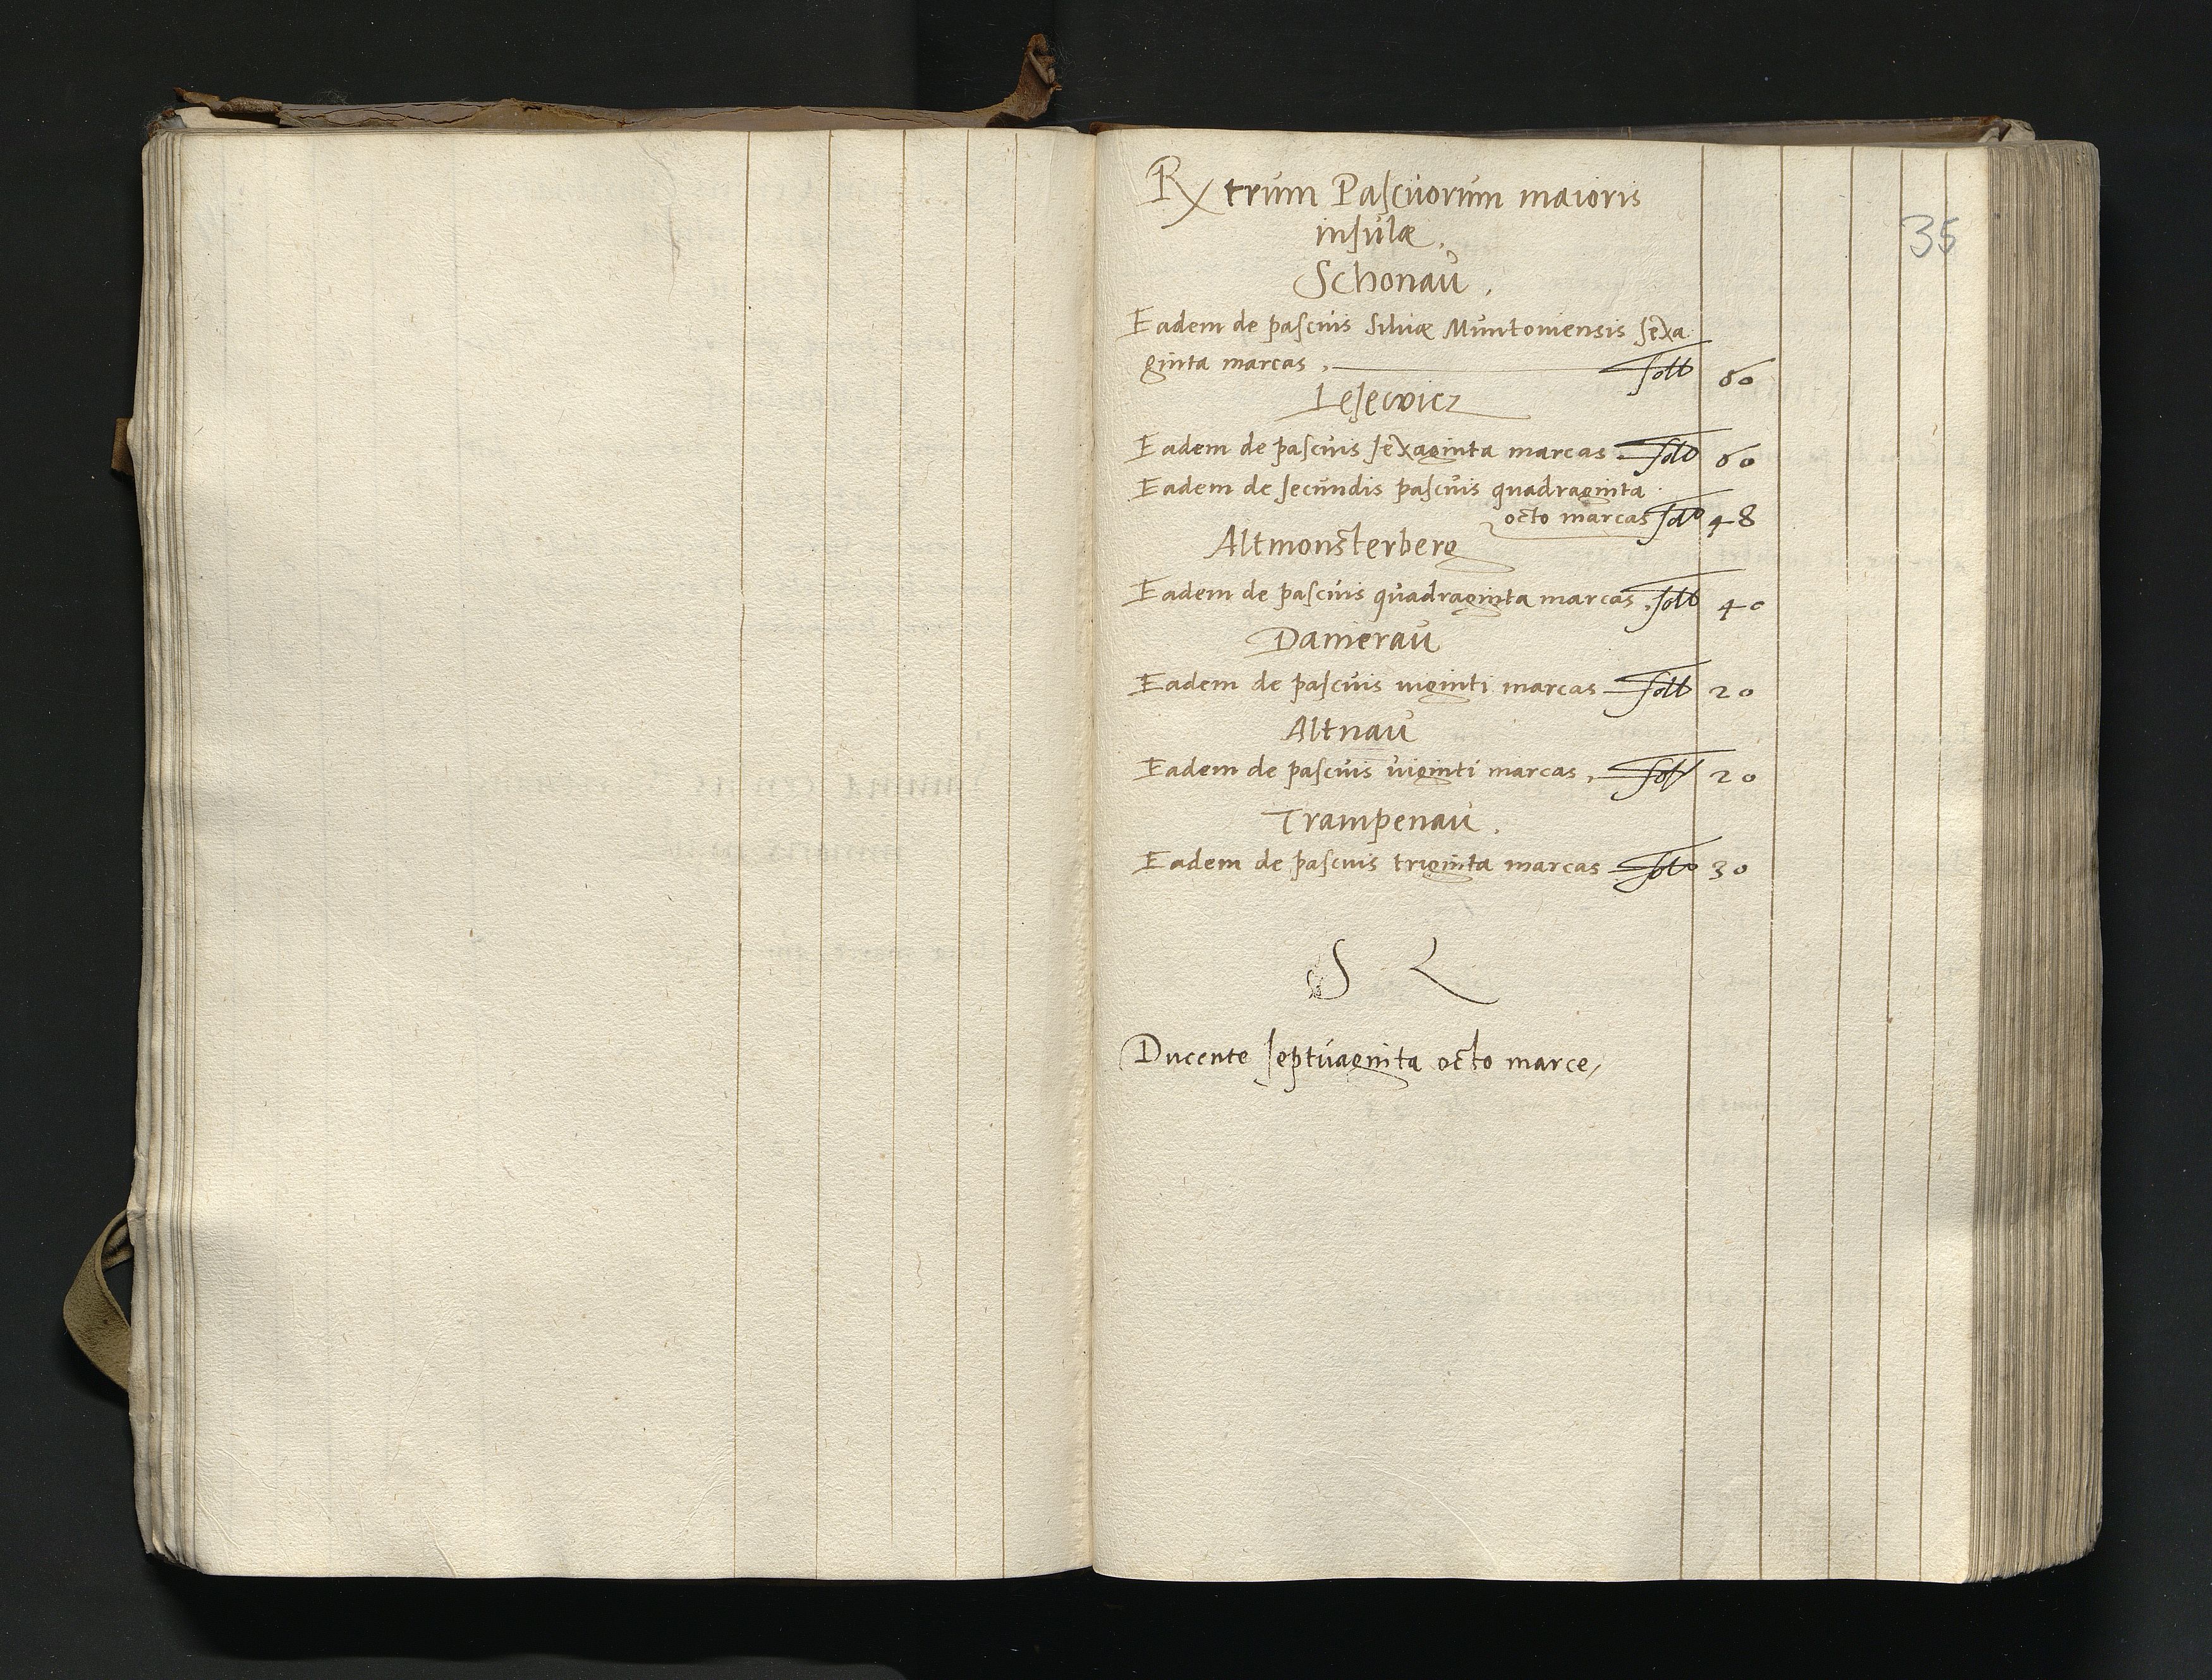 Rxtrum Pascuorum maioris
insulæ.
35
Schonau.
Eadem de pascuis Siluæ Muntouiensis sexa
ginta marcas. solt 60
Lesewicz
Eadem de pascuis sexaginta marcas solt 60
Eadem de secundis pascuis quadraginta
octo marcas solt 48
Altmonsterberg
Eadem de pascuis quadraginta marcas. solt 40
Damerau
Eadem de pascuis uiginti marcas solt 20
Altnau
Eadem de pascuis uiginti marcas. solt 20
Trampenau.
Eadem de pascuis triginta marcas solt 30
S
Ducente septuaginta octo marce,